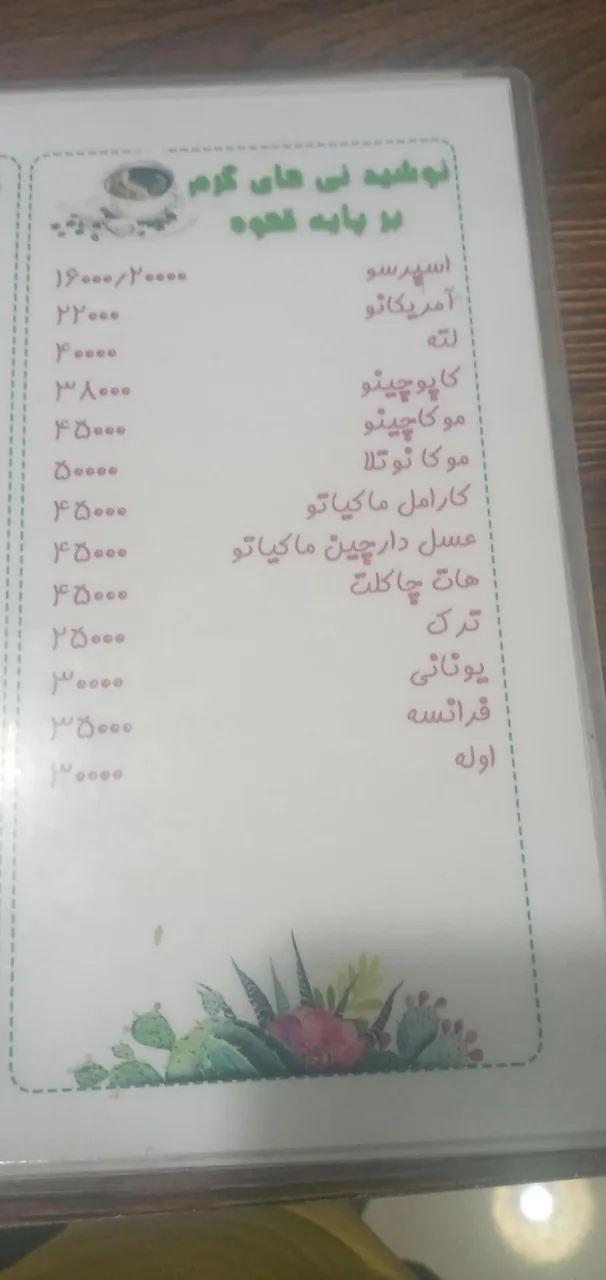 نوشیدنی های گرم
بر پایه قهوه
اسپرسو ۱۶۰۰۰/۲۰۰۰۰
آمریکانو ۲۲۰۰۰
لته ۴۰۰۰۰
کاپوچینو ۳۸۰۰۰
موکاچینو ۴۵۰۰۰
موکا نوتلا ۵۰۰۰۰
کارامل ماکیاتو ۴۵۰۰۰
عسل دارچین ماکیاتو ۴۵۰۰۰
هات چاکلت ۴۵۰۰۰
ترک ۲۵۰۰۰
یونانی ۳۰۰۰۰
فرانسه ۳۵۰۰۰
اوله ۳۰۰۰۰